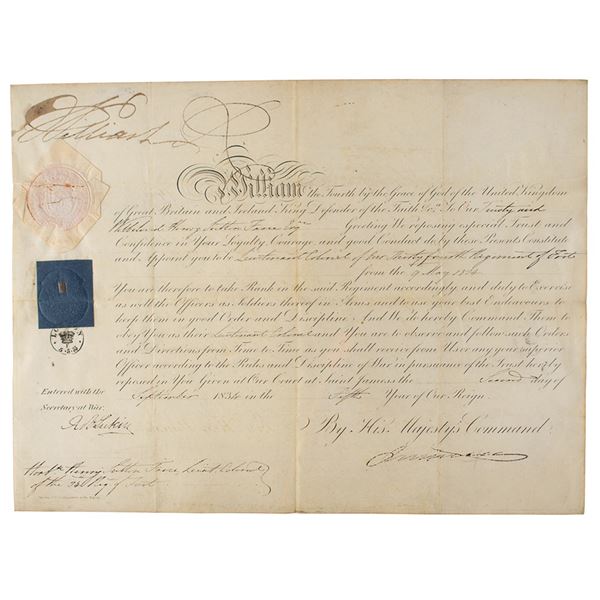 William R
William the Fourth by the Grace of God of the United Kingdom
of Great Britain and Ireland King Defender of the Faith &c. To Our Trusty and
Wellbeloved Henry Sutton Fane Esqr. Greeting We reposing especial Trust and
Confidence in Your Loyalty, Courage and good Conduct do by these Presents Constitute
and Appoint you to be Lieutenant Colonel of Our Thirty fourth Regiment of Foot
from the 9 May 1834
You are therefore to take Rank in the said Regiment accordingly and duly to Exercise
as well the Officers as Soldiers thereof in Arms and to use your best Endeavours to
keep them in good Order and Discipline; And We do hereby Command Them to
obey You as their Lieutenant Colonel and You are to observe and follow such Orders
and Directions from Time to Time as you shall receive from Us or any your superior
Officer according to the Rules and Discipline of War in pursuance of the Trust hereby
reposed in You Given at Our Court at Saint James's the Second day of
September 1834 in the Fifth Year of Our Reign.
Entered with the
Secretary at War
By His Majesty's Command
Honble Henry Sutton Fane Lieut Colonel
of the 34 Reg of Foot